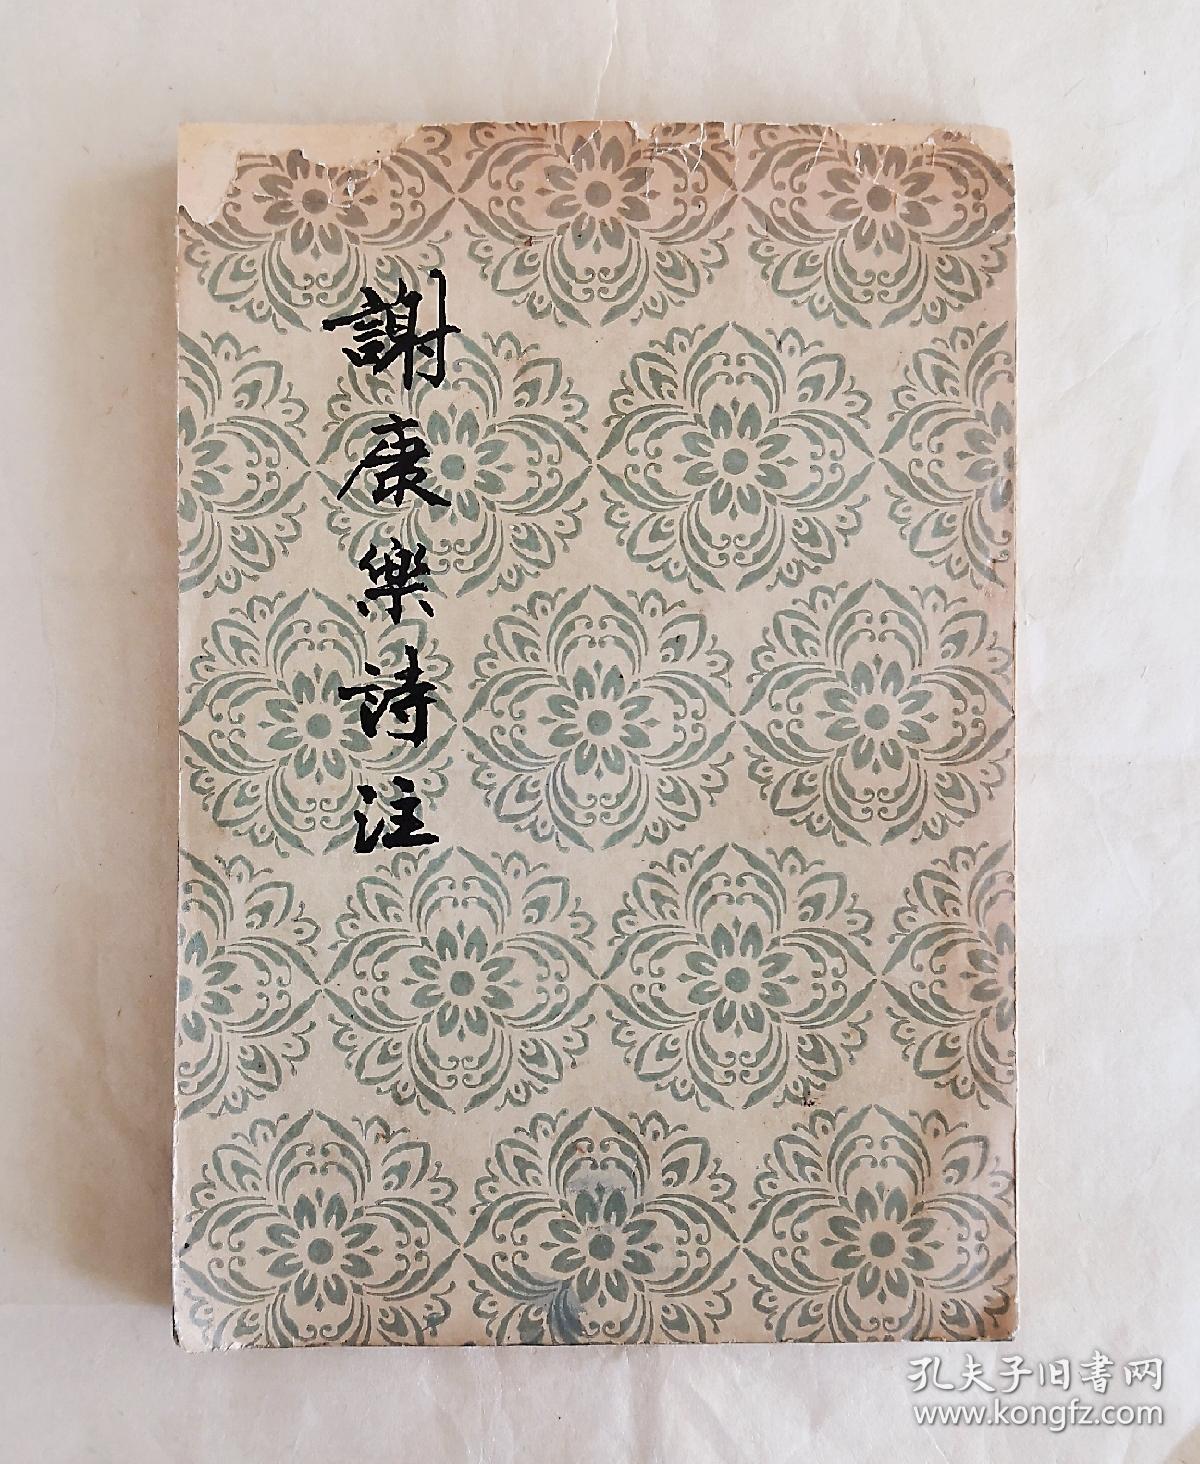 謝康樂詩注
孔夫子旧書网
www.kongfz.com